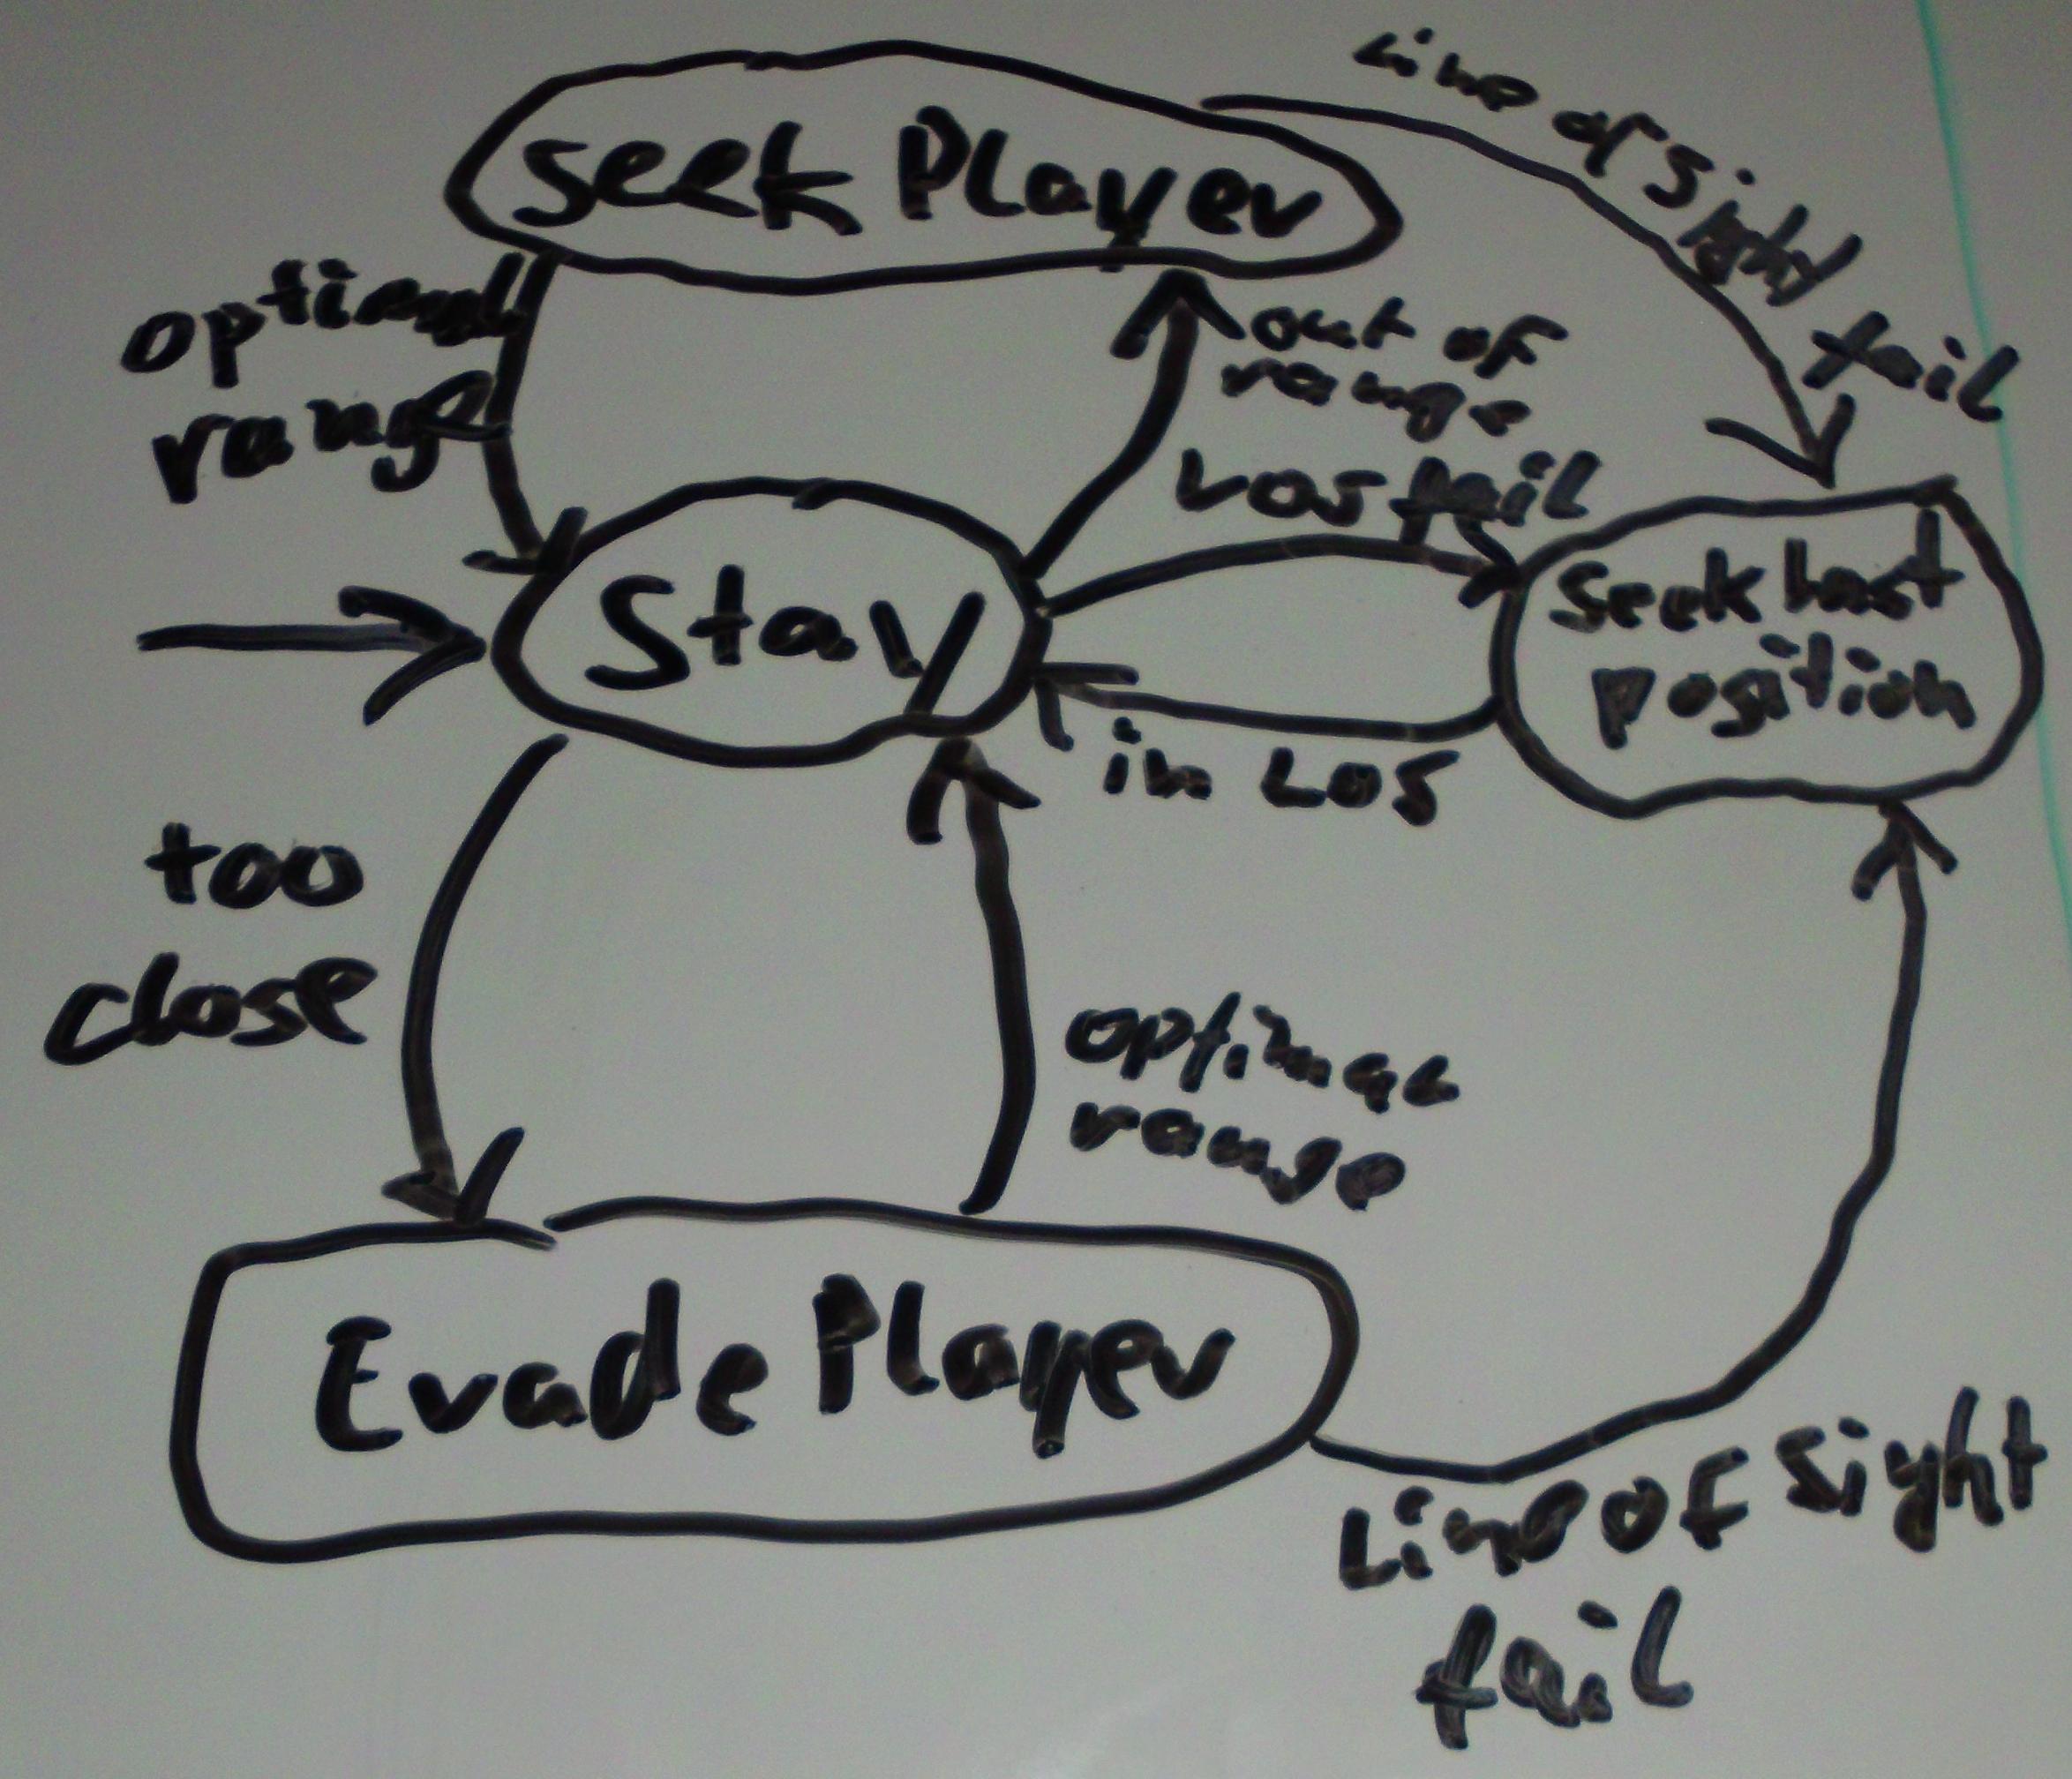 Line of Sight fail
Seek Player
optimal
range
out of
range
LOS fail
Stay
Seek Last
position
in LOS
too
close
optimal
range
Evade Player
Line of Sight
fail